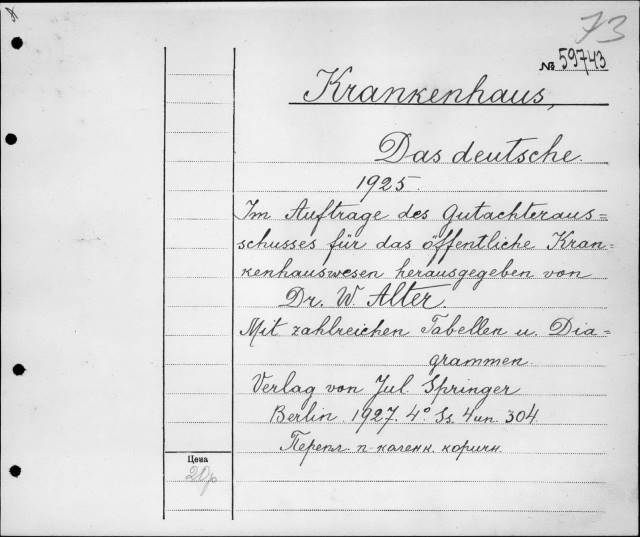 73
№ 59743
Krankenhaus,
Das deutsche.
1925.
Im Auftrage des Gutachteraus=
schusses für das öffentliche Kran=
kenhauswesen herausgegeben von
Dr. W. Alter.
Mit zahlreichen Tabellen u. Dia=
grammen.
Verlag von Jul. Springer
Berlin. 1927. 4° Ss. 4 un. 304.
Перепл. п-каленк. коричн.
Цена
20р